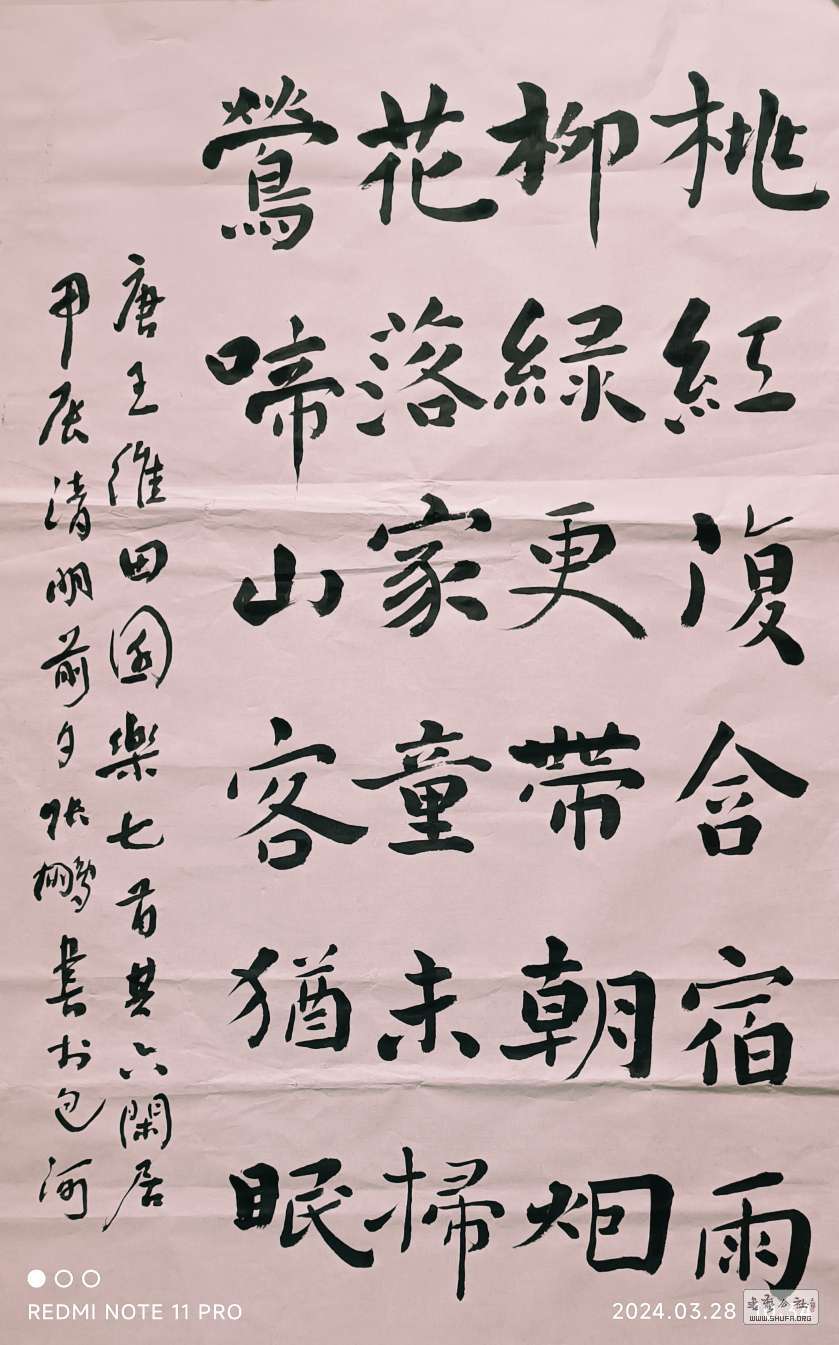 桃紅復含宿雨
柳緑更带朝烟
花落家童未掃
鶯啼山客猶眠
唐王維田園樂七首其六閑居
甲辰清明前夕张鹏書於包河
REDMI NOTE 11 PRO
2024.03.28
WWW.SHUFA.ORG